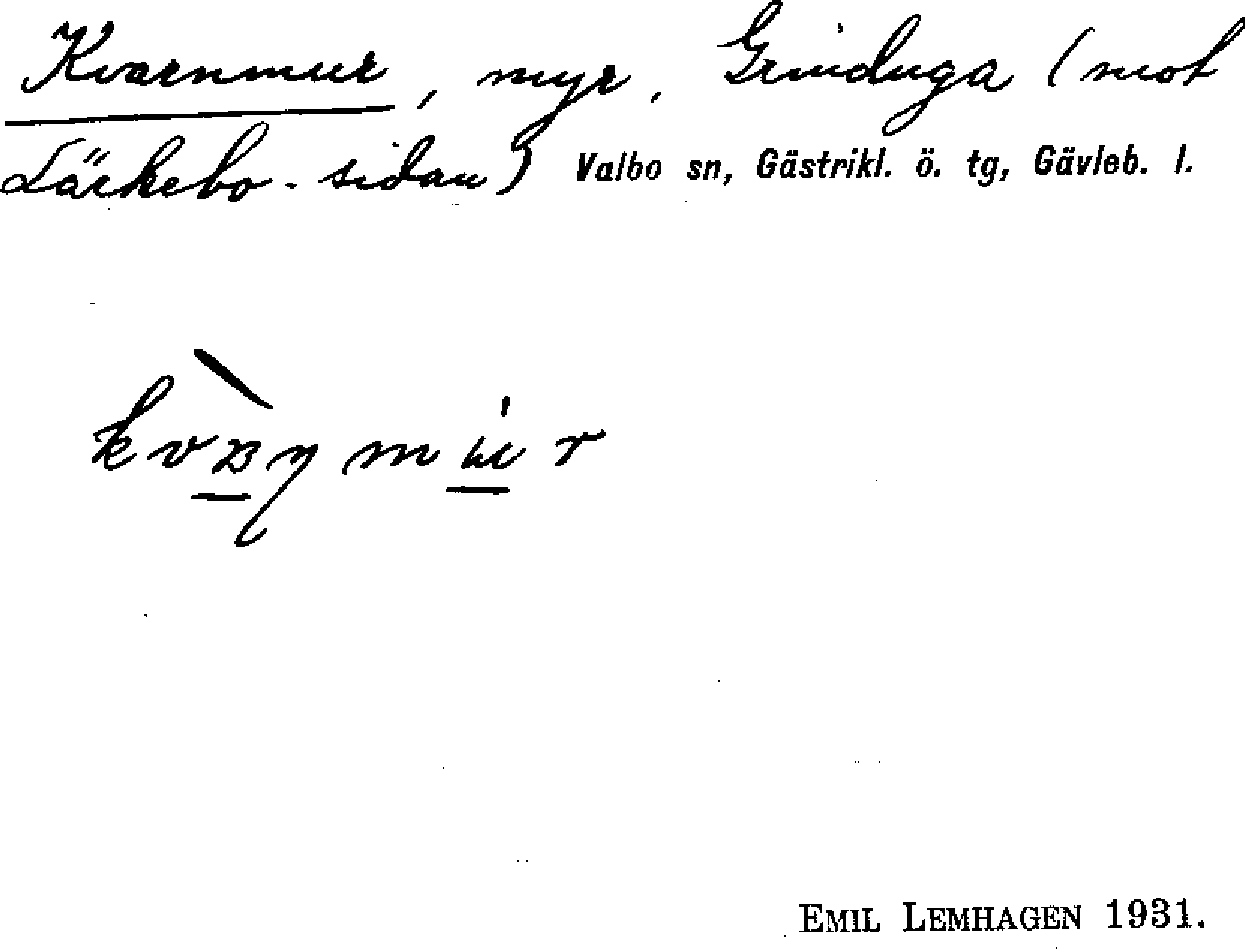 Kvarnmur, myr, Grinduga (mot
Lärkebo-sidan) Valbo sn, Gästrikl. ö. tg, Gävleb. l.
EMIL LEMHAGEN 1931.